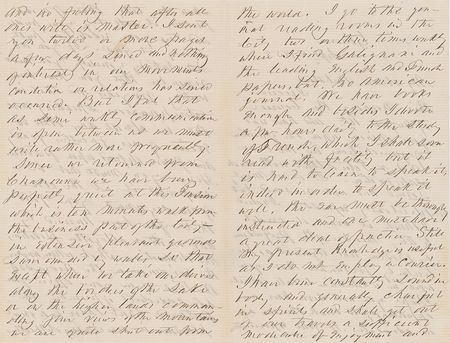 and in feeling that after all
one's wife is master. I sent
you twelve or more pages
a few days since and nothing
of interest in our movements
condition or relations has since
occurred. But I feel that
as semi weekly communication
is open between us we must
write rather more frequently.
Since we returned from
Chamouni we have been
perfectly quiet at this Pension
which is ten minutes walk from
the business part of the city—
in extensive pleasant grounds
surrounded by so that
except when we take our drives
along the borders of the Lake
or on the higher lands comman
ding fine views of the mountains
we are quite shut out from
the world. I go to the jour
nal reading rooms in the
City two or three times weekly
where I find Galignani and
the leading English and French
papers, but no American
journal. We have books
enough and besides I devote
a few hours daily to the study
of French, which I shall soon
read with facility but it
is hard to learn to speak it,
indeed in order to speak it
well, the ear must be thoroughly
instructed and one must have
a great deal of practice. Still
the present knowledge is useful
as I do not employ a Courier.
I have been constantly sound in
body, and generally cheerful
in spirits and shall get out
of our travels a sufficient
modicum of enjoyment and